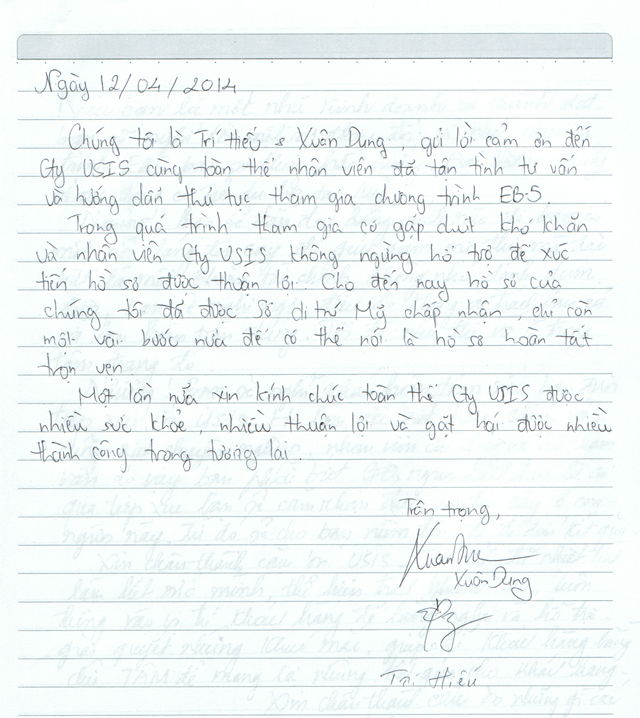 Ngày 12/04/2014
Chúng tôi là Trí Hiếu & Xuân Dung, gửi lời cảm ơn đến
Cty USIS cùng toàn thể nhân viên đã tận tình tư vấn
và hướng dẫn thủ tục tham gia chương trình EB-5.
Trong quá trình tham gia có gặp chút khó khăn
và nhân viên Cty USIS không ngừng hỗ trợ để xúc
tiến hồ sơ được thuận lợi. Cho đến nay hồ sơ của
chúng tôi đã được Sở di trú Mỹ chấp nhận, chỉ còn
một vài bước nữa để có thể nói là hồ sơ hoàn tất
trọn vẹn.
Một lần nữa xin kính chúc toàn thể Cty USIS được
nhiều sức khỏe, nhiều thuận lợi và gặt hái được nhiều
thành công trong tương lai.
Trân trọng,
Xuân Dung
Trí Hiếu